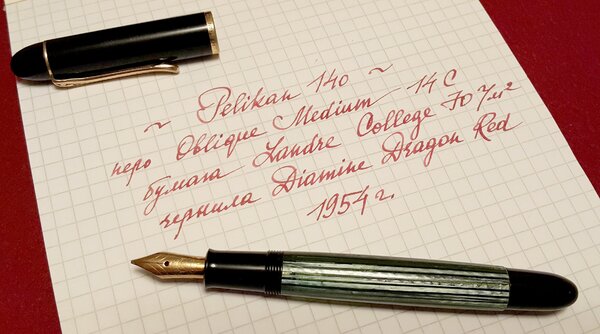 ~ Pelikan 140 ~
перо Oblique Medium 14 C
бумага Landre College 70 г/м²
чернила Diamine Dragon Red
1954 г.